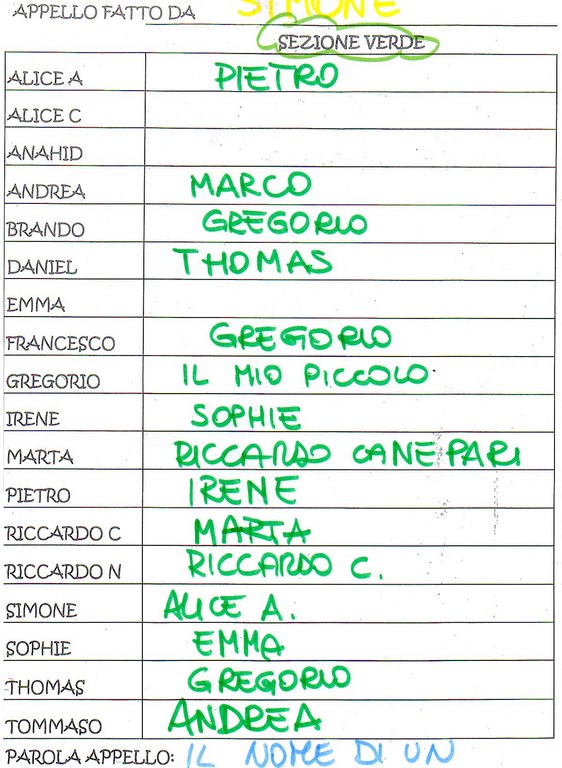 APPELLO FATTO DA SIMONE
SEZIONE VERDE
ALICE A PIETRO
ALICE C
ANAHID
ANDREA MARCO
BRANDO GREGORIO
DANIEL THOMAS
EMMA
FRANCESCO GREGORIO
GREGORIO IL MIO PICCOLO
IRENE SOPHIE
MARTA RICCARDO CANEPARI
PIETRO IRENE
RICCARDO C MARTA
RICCARDO N RICCARDO C.
SIMONE ALICE A.
SOPHIE EMMA
THOMAS GREGORIO
TOMMASO ANDREA
PAROLA APPELLO: IL NOME DI UN